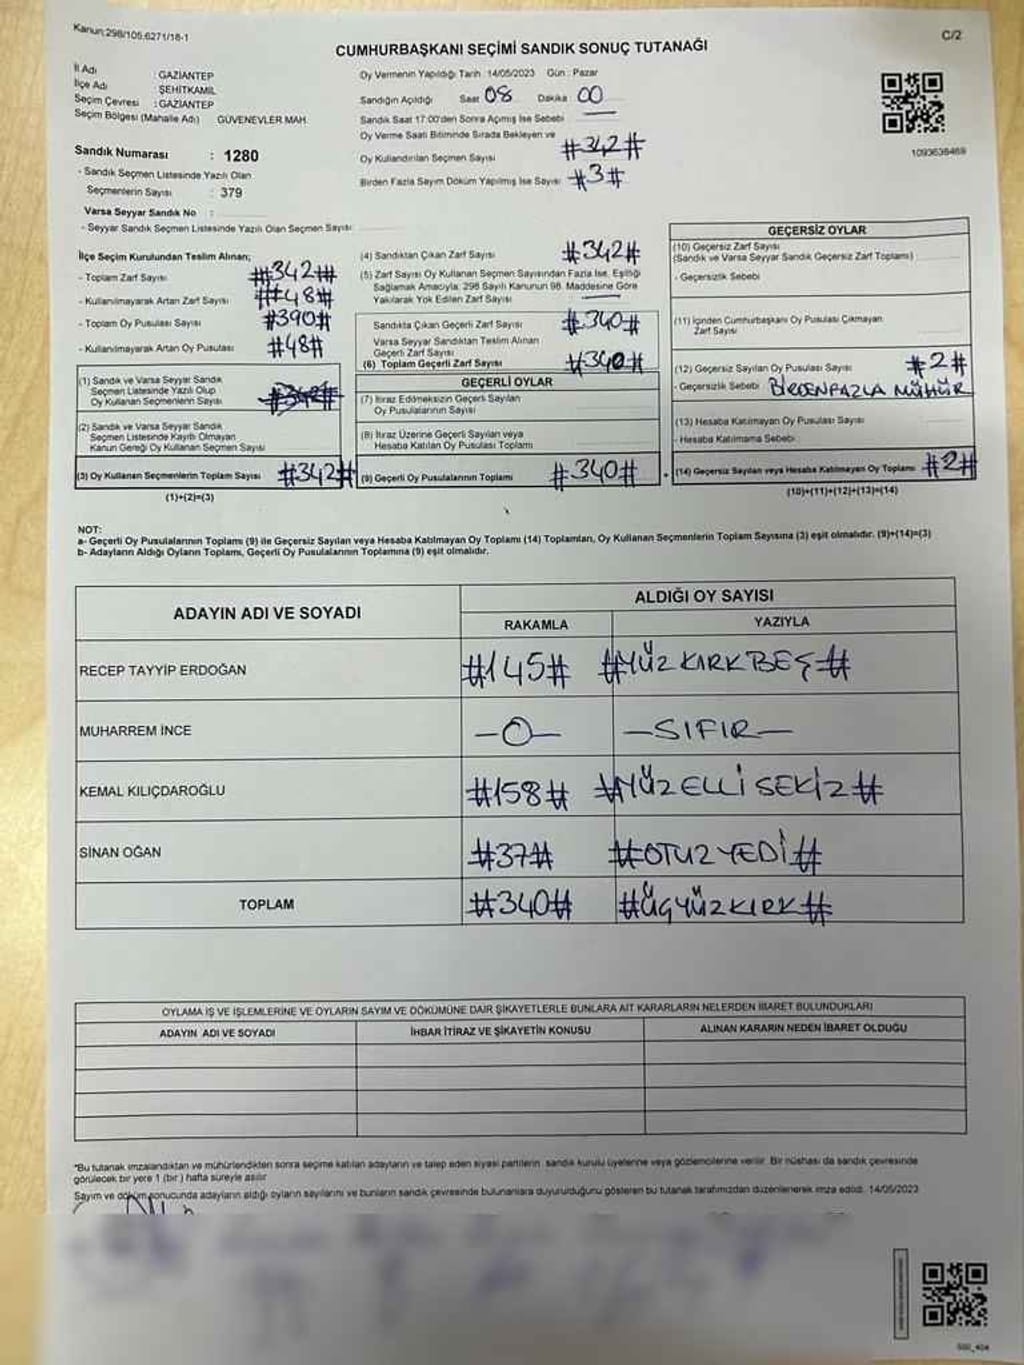 Kanun:298/105,6271/18-1
C/2
CUMHURBAŞKANI SEÇİMİ SANDIK SONUÇ TUTANAĞI
İl Adı GAZİANTEP
İlçe Adı ŞEHİTKAMİL
Seçim Çevresi : GAZİANTEP
Seçim Bölgesi (Mahalle Adı) GÜVENEVLER MAH.
Sandık Numarası : 1280
- Sandık Seçmen Listesinde Yazılı Olan
Seçmenlerin Sayısı : 379
Varsa Seyyar Sandık No :
- Seyyar Sandık Seçmen Listesinde Yazılı Olan Seçmen Sayısı:
Oy Vermenin Yapıldığı Tarih :14/05/2023 Gün : Pazar
Sandığın Açıldığı Saat 08 Dakika 00
Sandık Saat 17:00'den Sonra Açmış İse Sebebi
Oy Verme Saati Bitiminde Sırada Bekleyen ve
Oy Kullandırılan Seçmen Sayısı #342#
Birden Fazla Sayım Döküm Yapılmış İse Sayısı: #3#
1093638469
İlçe Seçim Kurulundan Teslim Alınan;
- Toplam Zarf Sayısı #342#
- Kullanılmayarak Artan Zarf Sayısı #48#
- Toplam Oy Pusulası Sayısı #390#
- Kullanılmayarak Artan Oy Pusulası #48#
(1) Sandık ve Varsa Seyyar Sandık
Seçmen Listesinde Yazılı Olup
Oy Kullanan Seçmenlerin Sayısı
(2) Sandık ve Varsa Seyyar Sandık
Seçmen Listesinde Kayıtlı Olmayan
Kanun Gereği Oy Kullanan Seçmen Sayısı
(3) Oy Kullanan Seçmenlerin Toplam Sayısı #342#
(1)+(2)=(3)
(4) Sandıktan Çıkan Zarf Sayısı #342#
(5) Zarf Sayısı Oy Kullanan Seçmen Sayısından Fazla İse, Eşitliği
Sağlamak Amacıyla: 298 Sayılı Kanunun 98. Maddesine Göre
Yakılarak Yok Edilen Zarf Sayısı
Sandıkta Çıkan Geçerli Zarf Sayısı #340#
Varsa Seyyar Sandıktan Teslim Alınan
Geçerli Zarf Sayısı
(6) Toplam Geçerli Zarf Sayısı #340#
GEÇERLİ OYLAR
(7) İtiraz Edilmeksizin Geçerli Sayılan
Oy Pusulalarının Sayısı
(8) İtiraz Üzerine Geçerli Sayılan veya
Hesaba Katılan Oy Pusulası Toplamı
(9) Geçerli Oy Pusulalarının Toplamı #340#
GEÇERSİZ OYLAR
(10) Geçersiz Zarf Sayısı
(Sandık ve Varsa Seyyar Sandık Geçersiz Zarf Toplamı)
- Geçersizlik Sebebi
(11) İçinden Cumhurbaşkanı Oy Pusulası Çıkmayan
Zarf Sayısı
(12) Geçersiz Sayılan Oy Pusulası Sayısı #2#
- Geçersizlik Sebebi BİRDENFAZLA MÜHÜR
(13) Hesaba Katılmayan Oy Pusulası Sayısı
- Hesaba Katılmama Sebebi
(14) Geçersiz Sayılan veya Hesaba Katılmayan Oy Toplamı #2#
(10)+(11)+(12)+(13)=(14)
NOT:
a- Geçerli Oy Pusulalarının Toplamı (9) ile Geçersiz Sayılan veya Hesaba Katılmayan Oy Toplamı (14) Toplamları, Oy Kullanan Seçmenlerin Toplam Sayısına (3) eşit olmalıdır. (9)+(14)=(3)
b- Adayların Aldığı Oyların Toplamı, Geçerli Oy Pusulalarının Toplamına (9) eşit olmalıdır.
ADAYIN ADI VE SOYADI ALDIĞI OY SAYISI
RAKAMLA YAZIYLA
RECEP TAYYİP ERDOĞAN #145# #YÜZ KIRK BEŞ#
MUHARREM İNCE -0- -SIFIR-
KEMAL KILIÇDAROĞLU #158# #YÜZ ELLİ SEKİZ#
SİNAN OĞAN #37# #OTUZ YEDİ#
TOPLAM #340# #ÜÇYÜZKIRK#
OYLAMA İŞ VE İŞLEMLERİNE VE OYLARIN SAYIM VE DÖKÜMÜNE DAİR ŞİKAYETLERLE BUNLARA AİT KARARLARIN NELERDEN İBARET BULUNDUKLARI
ADAYIN ADI VE SOYADI İHBAR İTİRAZ VE ŞİKAYETİN KONUSU ALINAN KARARIN NEDEN İBARET OLDUĞU
*Bu tutanak imzalandıktan ve mühürlendikten sonra seçime katılan adayların ve talep eden siyasi partilerin sandık kurulu üyelerine veya gözlemcilerine verilir. Bir nüshası da sandık çevresinde
görülecek bir yere 1 (bir) hafta süreyle asılır
Sayım ve döküm sonucunda adayların aldığı oyların sayılarını ve bunların sandık çevresinde bulunanlara duyurulduğunu gösteren bu tutanak tarafımızdan düzenlenerek imza edildi. 14/05/2023